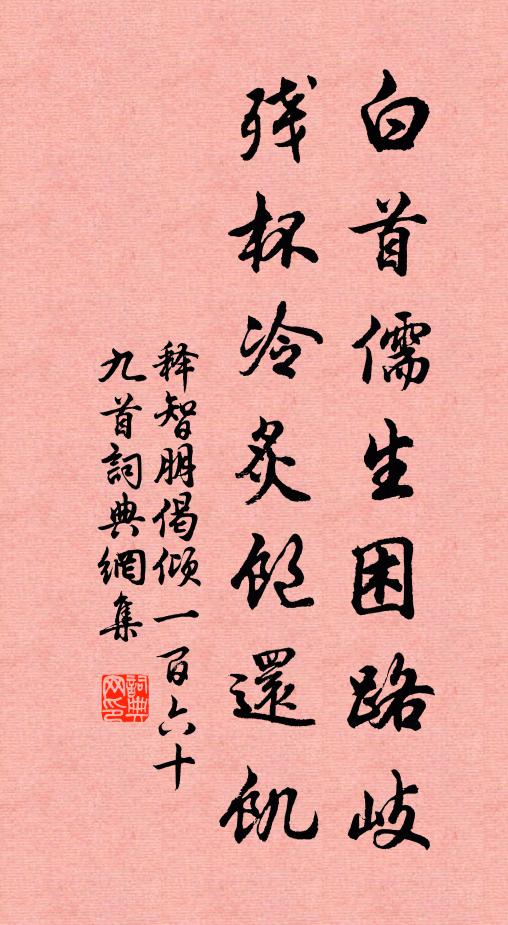 白首儒生困路岐
残杯冷炙飽還飢
释智朋偈倾一百六十
九首詞典網集
詞典網印